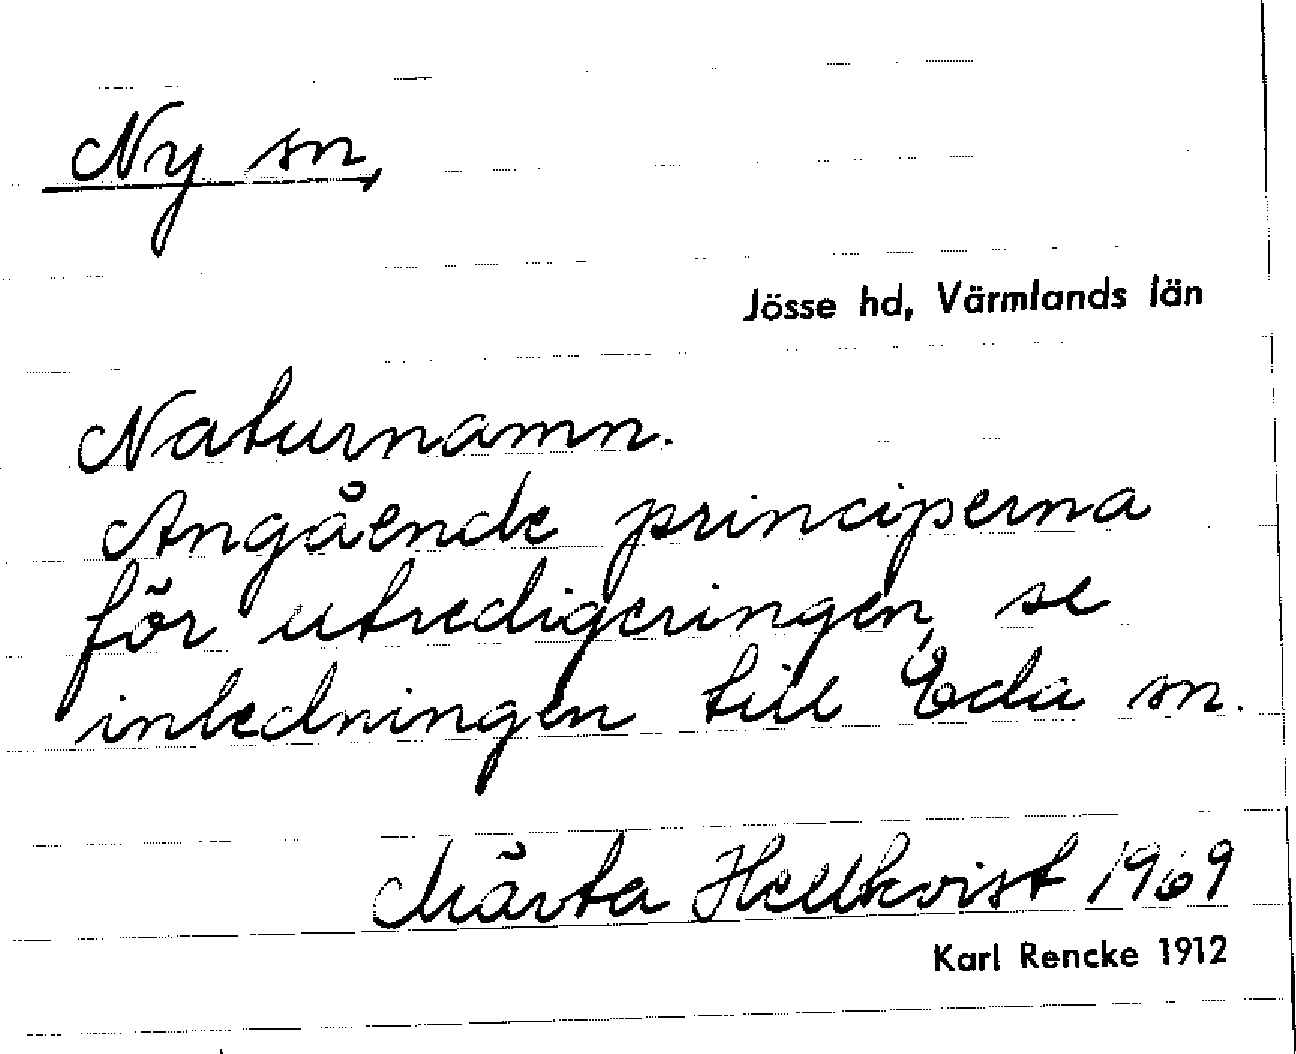 Ny sn,
Jösse hd, Värmlands län
Naturnamn.
Angående principerna
för utredigeringen, se
inledningen till Eda sn.
Märta Hellkvist 1969
Karl Rencke 1912